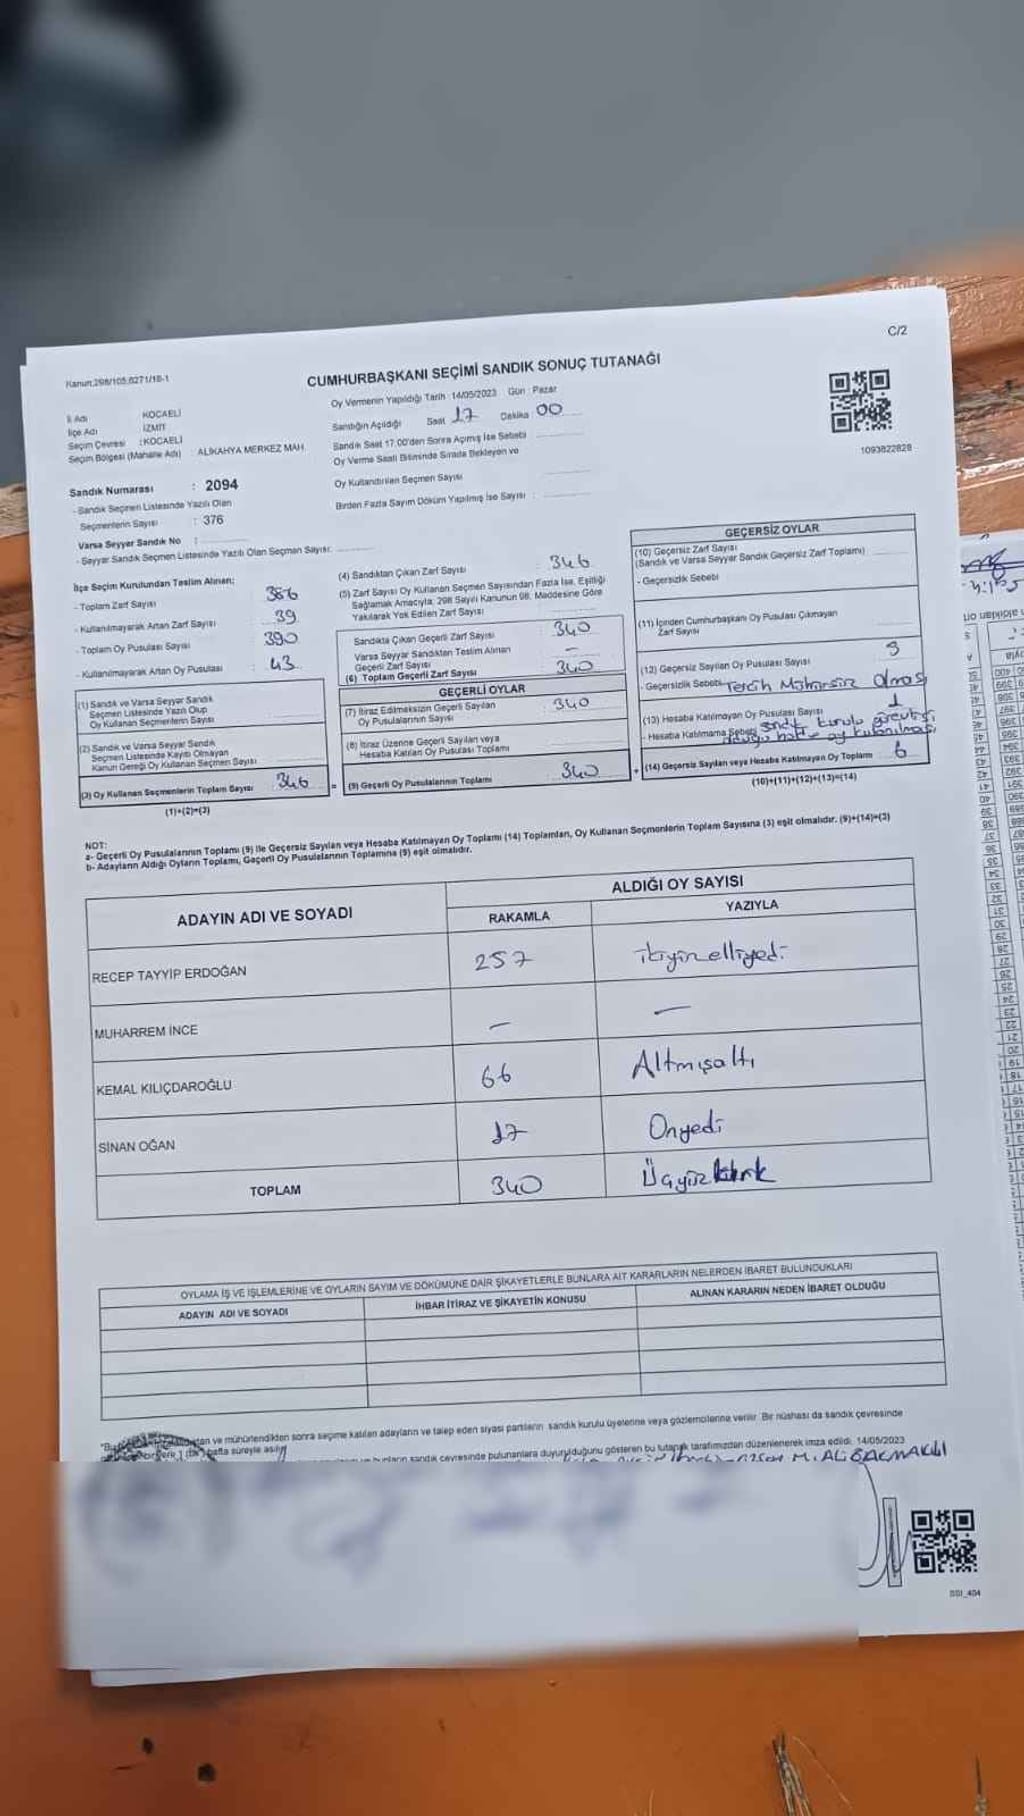 C/2
Kanun:298/105,6271/18-1
CUMHURBAŞKANI SEÇİMİ SANDIK SONUÇ TUTANAĞI
İl Adı KOCAELİ
İlçe Adı İZMİT
Seçim Çevresi :KOCAELİ
Seçim Bölgesi (Mahalle Adı) ALİKAHYA MERKEZ MAH.
Oy Vermenin Yapıldığı Tarih :14/05/2023 Gün : Pazar
Sandığın Açıldığı Saat 17 Dakika 00
Sandık Saat 17.00'den Sonra Açımış İse Sebebi
Oy Verme Saati Bitiminde Sırada Bekleyen ve
Oy Kullandırılan Seçmen Sayısı
Birden Fazla Sayım Döküm Yapılmış İse Sayısı :
1093822828
Sandık Numarası : 2094
- Sandık Seçmen Listesinde Yazılı Olan
Seçmenlerin Sayısı : 376
Varsa Seyyar Sandık No :
- Seyyar Sandık Seçmen Listesinde Yazılı Olan Seçmen Sayısı:
İlçe Seçim Kurulundan Teslim Alınan;
- Toplam Zarf Sayısı
- Kullanılmayarak Artan Zarf Sayısı : 39
- Toplam Oy Pusulası Sayısı : 390
- Kullanılmayarak Artan Oy Pusulası : 43
(1) Sandık ve Varsa Seyyar Sandık
Seçmen Listesinde Yazılı Olup
Oy Kullanan Seçmenlerin Sayısı
(2) Sandık ve Varsa Seyyar Sandık
Seçmen Listesinde Kayıtlı Olmayan
Kanun Gereği Oy Kullanan Seçmen Sayısı
(3) Oy Kullanan Seçmenlerin Toplam Sayısı 346
(1)+(2)=(3)
(4) Sandıktan Çıkan Zarf Sayısı : 346
(5) Zarf Sayısı Oy Kullanan Seçmen Sayısından Fazla İse, Eşitliği
Sağlamak Amacıyla; 298 Sayılı Kanunun 98. Maddesine Göre
Yakılarak Yok Edilen Zarf Sayısı :
Sandıkta Çıkan Geçerli Zarf Sayısı : 340
Varsa Seyyar Sandıktan Teslim Alınan
Geçerli Zarf Sayısı : -
(6) Toplam Geçerli Zarf Sayısı 340
GEÇERLİ OYLAR
(7) İtiraz Edilmeksizin Geçerli Sayılan
Oy Pusulalarının Sayısı 340
(8) İtiraz Üzerine Geçerli Sayılan veya
Hesaba Katılan Oy Pusulası Toplamı
(9) Geçerli Oy Pusulalarının Toplamı 340
GEÇERSİZ OYLAR
(10) Geçersiz Zarf Sayısı
(Sandık ve Varsa Seyyar Sandık Geçersiz Zarf Toplamı)
- Geçersizlik Sebebi
(11) İçinden Cumhurbaşkanı Oy Pusulası Çıkmayan
Zarf Sayısı
(12) Geçersiz Sayılan Oy Pusulası Sayısı
- Geçersizlik Sebebi Tercih Mühürsüz Olması
(13) Hesaba Katılmayan Oy Pusulası Sayısı 1
- Hesaba Katılmama Sebebi sandık kurulu görevlisi
olduğu halde oy kullanılması
(14) Geçersiz Sayılan veya Hesaba Katılmayan Oy Toplamı 6
(10)+(11)+(12)+(13)=(14)
NOT:
a- Geçerli Oy Pusulalarının Toplamı (9) ile Geçersiz Sayılan veya Hesaba Katılmayan Oy Toplamı (14) Toplamları, Oy Kullanan Seçmenlerin Toplam Sayısına (3) eşit olmalıdır. (9)+(14)=(3)
b- Adayların Aldığı Oyların Toplamı, Geçerli Oy Pusulalarının Toplamına (9) eşit olmalıdır.
ADAYIN ADI VE SOYADI
ALDIĞI OY SAYISI
RAKAMLA YAZIYLA
RECEP TAYYİP ERDOĞAN 257 ikiyüzelliyedi
MUHARREM İNCE - -
KEMAL KILIÇDAROĞLU 66 Altmışaltı
SİNAN OĞAN 17 Onyedi
TOPLAM 340 Üçyüzkırk
OYLAMA İŞ VE İŞLEMLERİNE VE OYLARIN SAYIM VE DÖKÜMÜNE DAİR ŞİKAYETLERLE BUNLARA AİT KARARLARIN NELERDEN İBARET BULUNDUKLARI
ADAYIN ADI VE SOYADI İHBAR İTİRAZ VE ŞİKAYETİN KONUSU ALINAN KARARIN NEDEN İBARET OLDUĞU
ve mühürlendikten sonra seçime katılan adayların ve talep eden siyasi partilerin sandık kurulu üyelerine veya gözlemcilerine verilir. Bir nüshası da sandık çevresinde
hafta süreyle asılır
bunların sandık çevresinde bulunanlara duyurulduğunu gösteren bu tutanak tarafımızdan düzenlenerek imza edildi. 14/05/2023
SSI_404